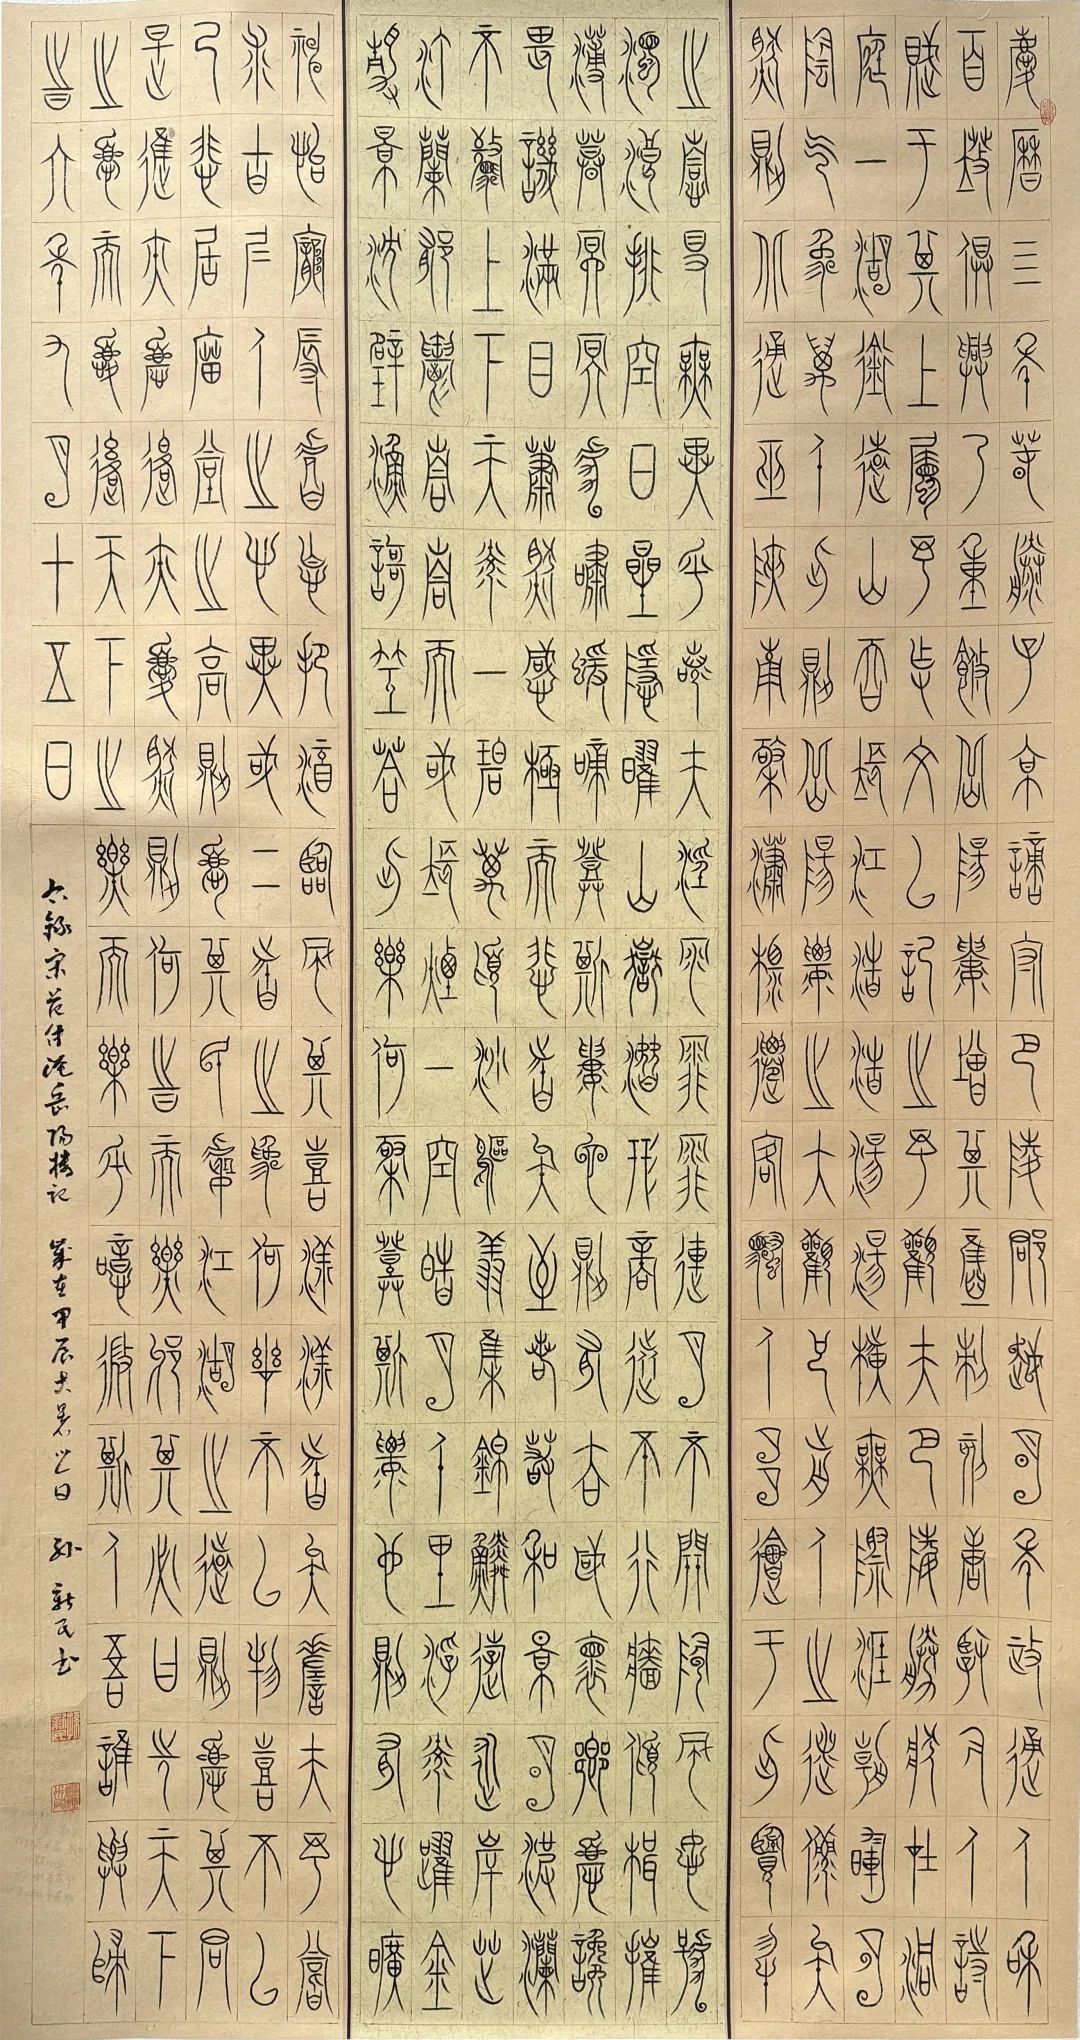 慶曆四年春滕子京謫守巴陵郡越明年政通人和
百廢俱興乃重修岳陽樓增其舊制刻唐賢今人詩
賦于其上屬予作文以記之予觀夫巴陵勝狀在洞
庭一湖銜遠山吞長江浩浩湯湯橫無際涯朝暉夕
陰氣象萬千此則岳陽樓之大觀也前人之述備矣
然則北通巫峽南極瀟湘遷客騷人多會于此覽物
之情得無異乎若夫淫雨霏霏連月不開陰風怒號
濁浪排空日星隱曜山嶽潛形商旅不行檣傾楫摧
薄暮冥冥虎嘯猿啼登斯樓也則有去國懷鄉憂讒
畏譏滿目蕭然感極而悲者矣至若春和景明波瀾
不驚上下天光一碧萬頃沙鷗翔集錦鱗游泳岸芷
汀蘭郁郁青青而或長煙一空皓月千里浮光躍金
靜影沉璧漁歌互答此樂何極登斯樓也則有心曠
神怡寵辱皆忘把酒臨風其喜洋洋者矣嗟夫予嘗
求古仁人之心或異二者之為何哉不以物喜不以
己悲居廟堂之高則憂其民處江湖之遠則憂其君
是進亦憂退亦憂然則何時而樂耶其必曰先天下
之憂而憂後天下之樂而樂乎噫微斯人吾誰與歸
時六年九月十五日
右錄宋范仲淹岳陽樓記 歲在甲辰大暑之日 孫新民書